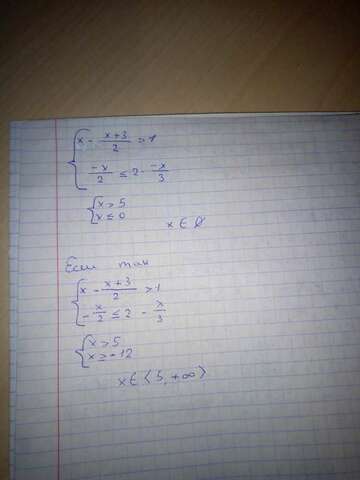 x - (x+3)/2 > 1
-x/2 ≤ 2 · -x/3
{ x > 5
x ≤ 0
x ∈ ∅
Если так
x - (x+3)/2 > 1
-x/2 ≤ 2 - x/3
{ x > 5
x ≥ -12
x ∈ (5, +∞)